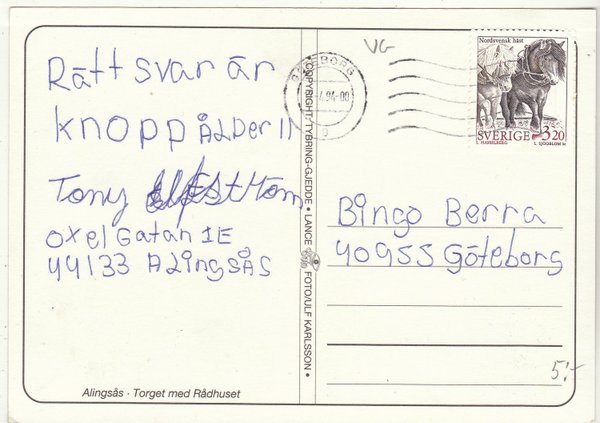 VG
Nordsvensk häst
SVERIGE 3.20
L. SJÖÖBLOM SC
GÖTEBORG
4.94-08
Rätt svar är
knopp ÅLDER 11
Tony
OxelGatan 1E
44133 ALingsÅs
COPYRIGHT: TYBRING-GJEDDE • LANCE • FOTO/ULF KARLSSON •
Bingo Berra
40955 Göteborg
5:-
Alingsås · Torget med Rådhuset